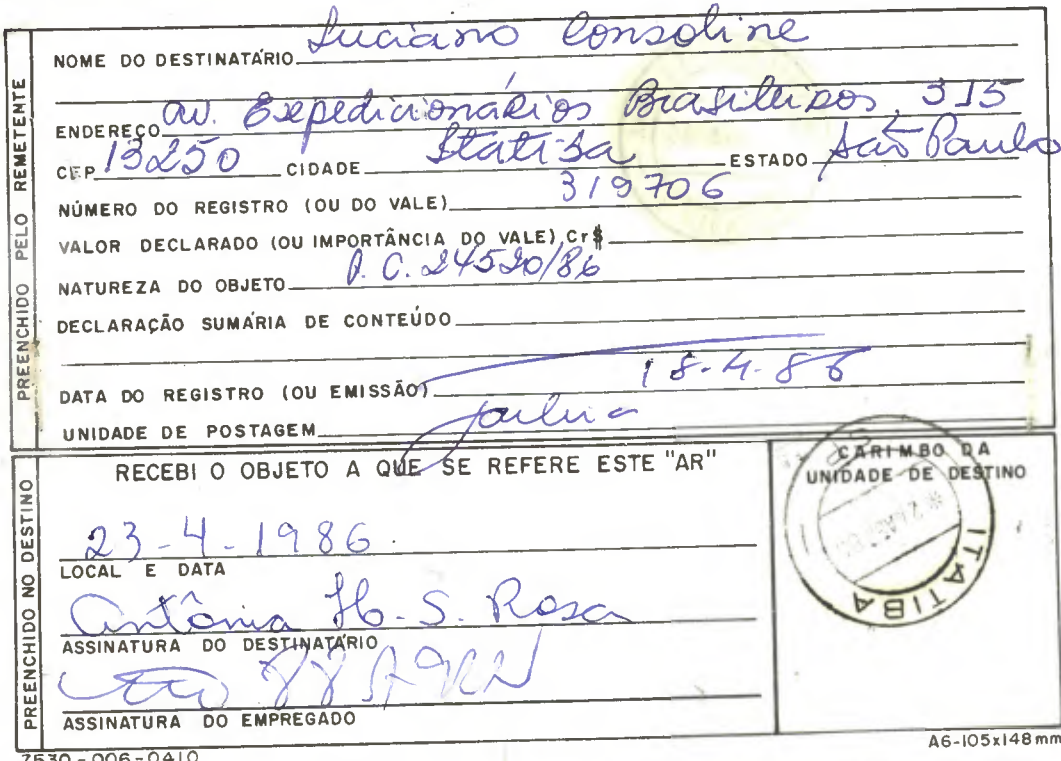 PREENCHIDO PELO REMETENTE
NOME DO DESTINATÁRIO Luciano Consoline
ENDEREÇO av. Expedicionários Brasileiros, 315
CEP 13250 CIDADE Itatiba ESTADO São Paulo
NÚMERO DO REGISTRO (OU DO VALE) 319706
VALOR DECLARADO (OU IMPORTÂNCIA DO VALE) Cr$
NATUREZA DO OBJETO P.C. 24520/86
DECLARAÇÃO SUMÁRIA DE CONTEÚDO
DATA DO REGISTRO (OU EMISSÃO) 18-4-86
UNIDADE DE POSTAGEM
PREENCHIDO NO DESTINO
RECEBI O OBJETO A QUE SE REFERE ESTE "AR"
23-4-1986
LOCAL E DATA
Antônia H. S. Rosa
ASSINATURA DO DESTINATÁRIO
ASSINATURA DO EMPREGADO
CARIMBO DA
UNIDADE DE DESTINO
ITATIBA
7530-006-0410
A6-105x148mm